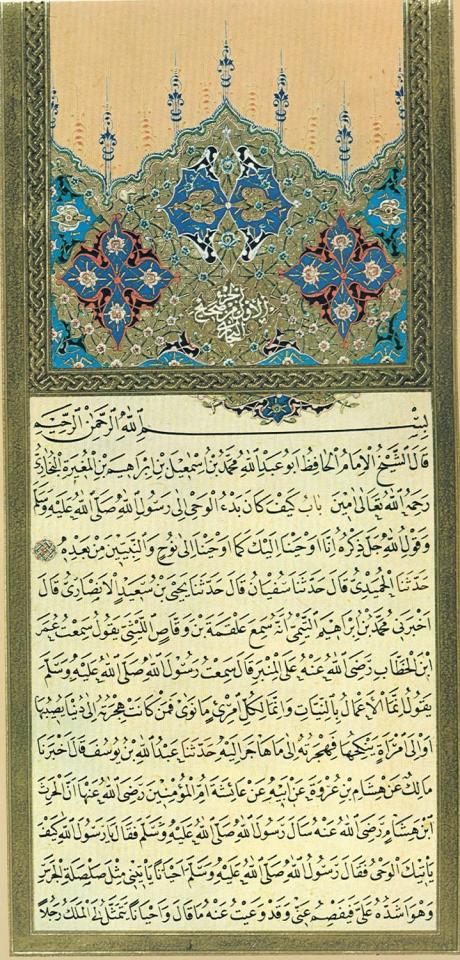 الجزء الاول من صحيح البخاري
بسم الله الرحمن الرحيم
قال الشيخ الامام الحافظ ابو عبد الله محمد بن اسمعيل بن ابراهيم بن المغيرة البخاري
رحمه الله تعالى امين باب كيف كان بدء الوحي الى رسول الله صلى الله عليه وسلم
وقول الله جل ذكره انا اوحينا اليك كما اوحينا الى نوح والنبيين من بعده
حدثنا الحميدي قال حدثنا سفيان قال حدثنا يحيى بن سعيد الانصاري قال
اخبرني محمد بن ابراهيم التيمي انه سمع علقمة بن وقاص الليثي يقول سمعت عمر
ابن الخطاب رضي الله عنه على المنبر قال سمعت رسول الله صلى الله عليه وسلم
يقول انما الاعمال بالنيات وانما لكل امرئ ما نوى فمن كانت هجرته الى دنيا يصيبها
او الى امرأة ينكحها فهجرته الى ما هاجر اليه حدثنا عبد الله بن يوسف قال اخبرنا
مالك عن هشام بن عروة عن ابيه عن عائشة ام المؤمنين رضي الله عنها ان الحرث
ابن هشام رضي الله عنه سأل رسول الله صلى الله عليه وسلم فقال يا رسول الله كيف
يأتيك الوحي فقال رسول الله صلى الله عليه وسلم احيانا يأتيني مثل صلصلة الجرس
وهو اشده علي فيفصم عني وقد وعيت عنه ما قال واحيانا يتمثل لي الملك رجلا